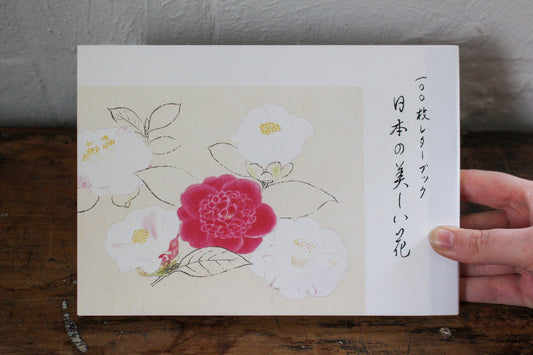 一〇〇枚レターブック
日本の美しい花